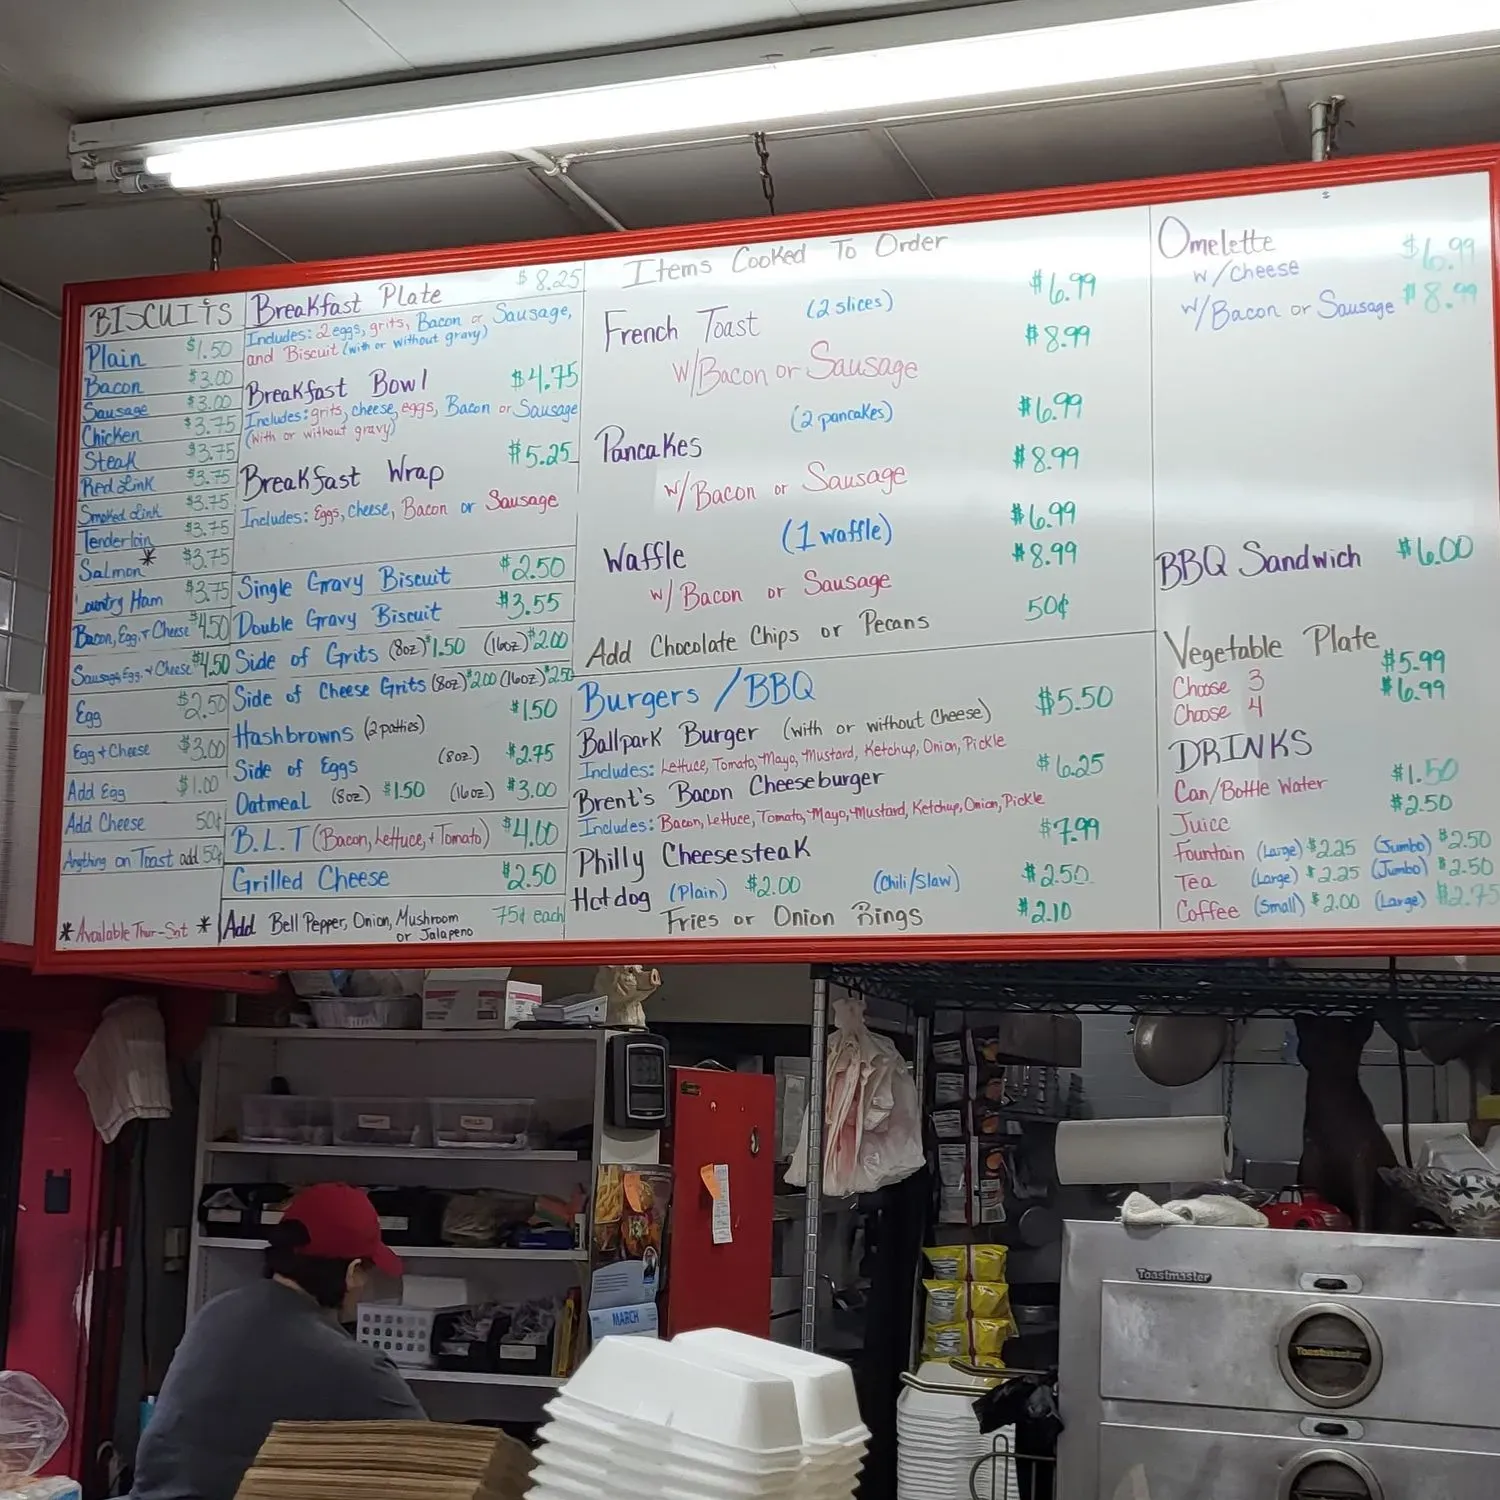 BISCUITS
Plain $1.50
Bacon $3.00
Sausage $3.00
Chicken $3.75
Steak $3.75
Red Link $3.75
Smoked Link $3.75
Tenderloin $3.75
Salmon* $3.75
Country Ham $3.75
Bacon, Egg, + Cheese $4.50
Sausage, Egg, + Cheese $4.50
Egg $2.50
Egg + Cheese $3.00
Add Egg $1.00
Add Cheese 50¢
Anything on Toast add 50¢
* Available Thur-Sat *
Breakfast Plate $8.25
Includes: 2 eggs, grits, Bacon or Sausage,
and Biscuit (with or without gravy)
Breakfast Bowl $4.75
Includes: grits, cheese, eggs, Bacon or Sausage
(with or without gravy)
Breakfast Wrap $5.25
Includes: Eggs, cheese, Bacon or Sausage
Single Gravy Biscuit $2.50
Double Gravy Biscuit $3.55
Side of Grits (8oz) $1.50 (16oz) $2.00
Side of Cheese Grits (8oz) $2.00 (16oz) $2.50
Hashbrowns (2 patties) $1.50
Side of Eggs (8oz) $2.75
Oatmeal (8oz) $1.50 (16oz) $3.00
B.L.T (Bacon, Lettuce, + Tomato) $4.00
Grilled Cheese $2.50
Add Bell Pepper, Onion, Mushroom 75¢ each
or Jalapeno
Items Cooked To Order
French Toast (2 slices) $6.99
w/Bacon or Sausage $8.99
Pancakes (2 pancakes) $6.99
w/Bacon or Sausage $8.99
Waffle (1 waffle) $6.99
w/Bacon or Sausage $8.99
Add Chocolate Chips or Pecans 50¢
Burgers / BBQ
Ballpark Burger (with or without Cheese) $5.50
Includes: Lettuce, Tomato, Mayo, Mustard, Ketchup, Onion, Pickle
Brent's Bacon Cheeseburger $6.25
Includes: Bacon, Lettuce, Tomato, Mayo, Mustard, Ketchup, Onion, Pickle
Philly Cheesesteak $7.99
Hotdog (Plain) $2.00 (Chili/Slaw) $2.50
Fries or Onion Rings $2.10
Omelette
w/Cheese $6.99
w/Bacon or Sausage $8.99
BBQ Sandwich $6.00
Vegetable Plate
Choose 3 $5.99
Choose 4 $6.99
DRINKS
Can/Bottle Water $1.50
Juice $2.50
Fountain (Large) $2.25 (Jumbo) $2.50
Tea (Large) $2.25 (Jumbo) $2.50
Coffee (Small) $2.00 (Large) $2.75
MARCH
Toastmaster
Toastmaster